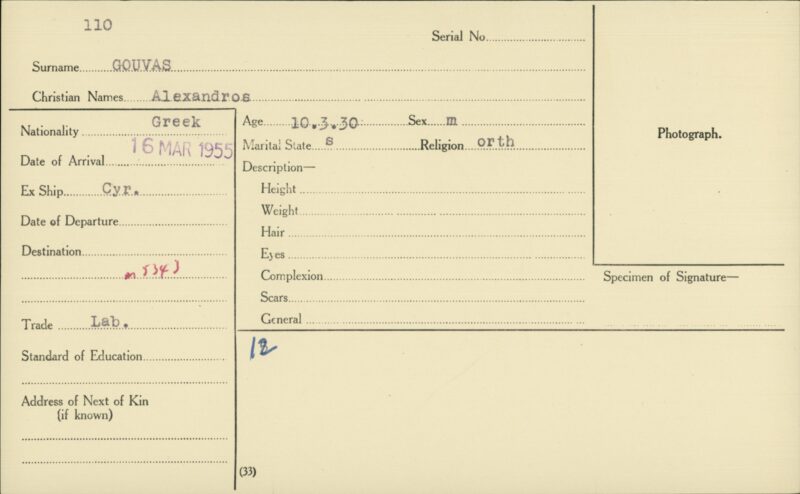 110
Serial No.
Surname GOUVAS
Christian Names Alexandros
Nationality Greek
Date of Arrival 16 MAR 1955
Ex Ship Cyr.
Date of Departure
Destination
m 5343
Trade Lab.
Standard of Education
Address of Next of Kin
(if known)
Age 10.3.30 Sex m
Marital State s Religion orth
Description—
Height
Weight
Hair
Eyes
Complexion
Scars
General
12
(33)
Photograph.
Specimen of Signature—